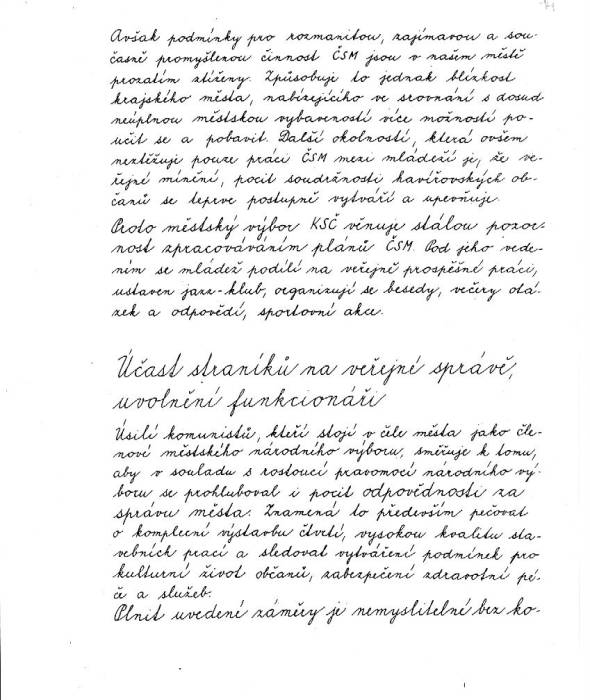 Avšak podmínky pro rozmanitou, zajímavou a sou-
časně promyšlenou činnost ČSM jsou v našem městě
prozatím ztíženy. Způsobuje to jednak blízkost
krajského města, nabízejícího ve srovnání s dosud
neúplnou městskou vybaveností více možností po-
učit se a pobavit. Další okolností, která ovšem
neztěžuje pouze práci ČSM mezi mládeží je, že ve-
řejné mínění, pocit soudržnosti havířovských ob-
čanů se teprve postupně vytváří a upevňuje.
Proto městský výbor KSČ věnuje stálou pozor-
nost zpracováváním plánů ČSM. Pod jeho vede-
ním se mládež podílí na veřejně prospěšné práci,
ustaven jazz-klub, organizují se besedy, večery otá-
zek a odpovědí, sportovní akce.
Účast straníků na veřejné správě,
uvolnění funkcionáři
Úsilí komunistů, kteří stojí v čele města jako čle-
nové městského národního výboru, směřuje k tomu,
aby v souladu s rostoucí pravomocí národního vý-
boru se prohluboval i pocit odpovědnosti za
správu města. Znamená to především pečovat
o komplecní výstavbu čtvrtí, vysokou kvalitu sta-
vebních prací a sledovat vytváření podmínek pro
kulturní život občanů, zabezpečení zdravotní pé-
če a služeb.
Plnit uvedení záměry je nemyslitelné bez ko-